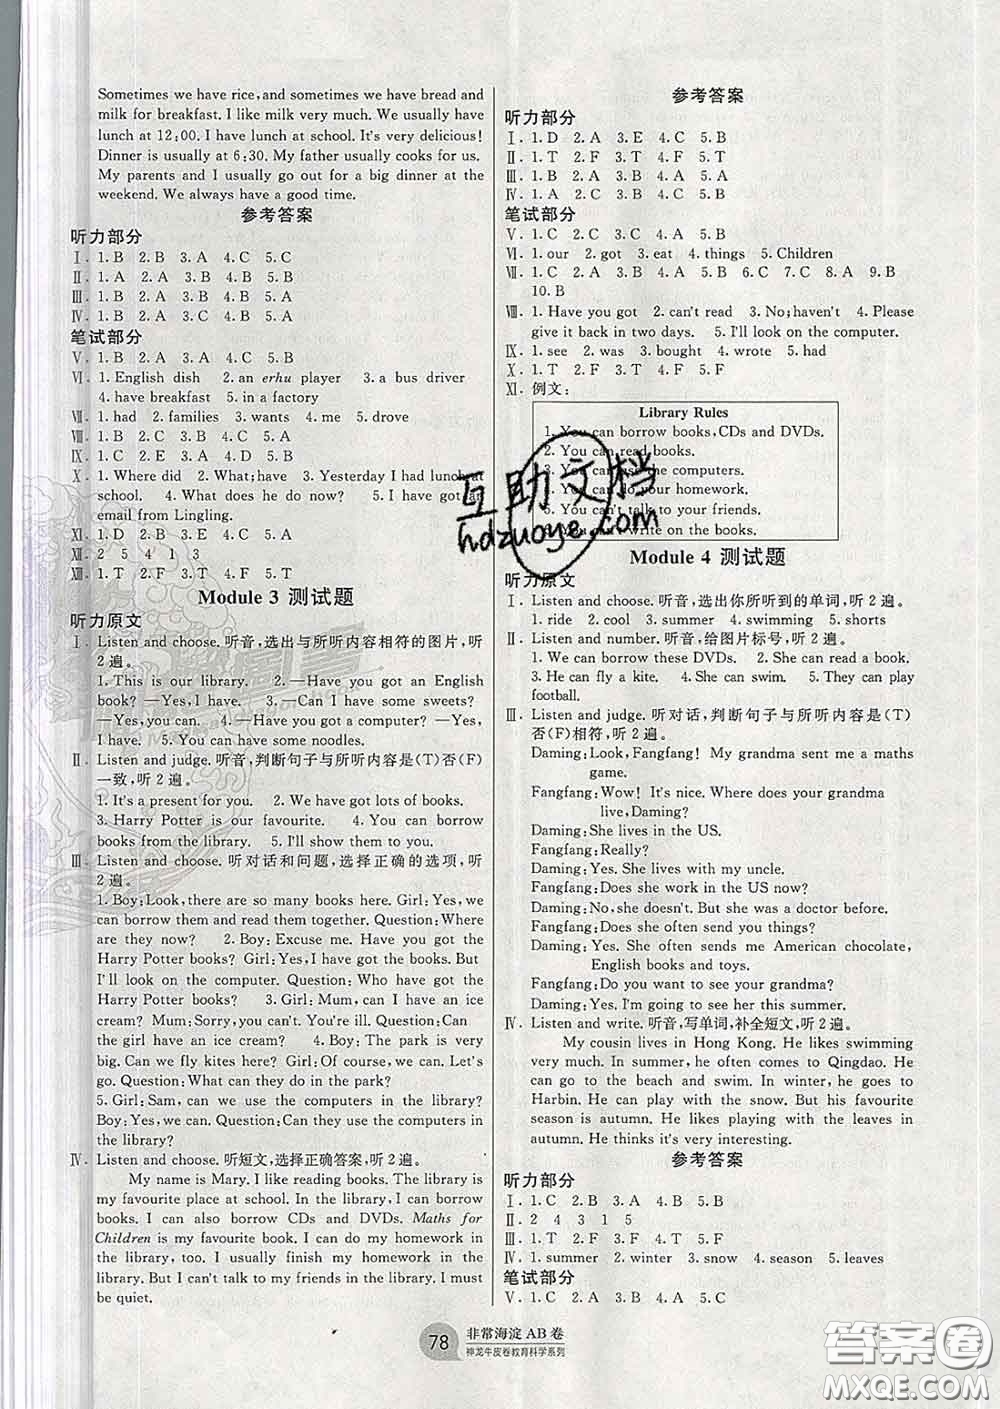 Sometimes we have rice, and sometimes we have bread and
milk for breakfast. I like milk very much. We usually have
lunch at 12:00. I have lunch at school. It's very delicious!
Dinner is usually at 6:30. My father usually cooks for us.
My parents and I usually go out for a big dinner at the
weekend. We always have a good time.
参考答案
听力部分
Ⅰ. 1.B 2.B 3.A 4.C 5.C
Ⅱ. 1.A 2.A 3.B 4.B 5.A
Ⅲ. 1.B 2.A 3.B 4.B 5.A
Ⅳ. 1.B 2.A 3.C 4.B 5.A
笔试部分
Ⅴ. 1.B 2.A 3.A 4.C 5.B
Ⅵ. 1. English dish 2. an erhu player 3. a bus driver
4. have breakfast 5. in a factory
Ⅶ. 1. had 2. families 3. wants 4. me 5. drove
Ⅷ. 1.B 2.C 3.A 4.B 5.B
Ⅸ. 1.C 2.E 3.A 4.D 5.B
Ⅹ. 1. Where did 2. What; have 3. Yesterday I had lunch at
school. 4. What does he do now? 5. I have got an
email from Lingling.
Ⅺ. 1.D 2.B 3.C 4.A 5.B
Ⅻ. 2 5 4 1 3
XIII. 1.T 2.F 3.F 4.T 5.F
Module 3 测试题
听力原文
Ⅰ. Listen and choose. 听音,选出与所听内容相符的图片,听
2遍。
1. This is our library. 2. —Have you got an English
book? —Yes, I have. 3. —Can I have some sweets?
—Yes, you can. 4. —Have you got a computer? —Yes,
I have. 5. You can have some noodles.
Ⅱ. Listen and judge. 听音,判断句子与所听内容是(T)否(F)
一致,听2遍。
1. It's a present for you. 2. We have got lots of books.
3. Harry Potter is our favourite. 4. You can borrow
books from the library. 5. I'll show them to you.
Ⅲ. Listen and choose. 听对话和问题,选择正确的选项,听
2遍。
1. Boy: Look, there are so many books here. Girl: Yes, we
can borrow them and read them together. Question: Where
are they now? 2. Boy: Excuse me. Have you got the
Harry Potter books? Girl: Yes, I have got the books. But
I'll look on the computer. Question: Who have got the
Harry Potter books? 3. Girl: Mum, can I have an ice
cream? Mum: Sorry, you can't. You're ill. Question: Can
the girl have an ice cream? 4. Boy: The park is very
big. Can we fly kites here? Girl: Of course, we can. Let's
go. Question: What can they do in the park?
5. Girl: Sam, can we use the computers in the library?
Boy: Yes, we can. Question: Can they use the computers in
the library?
Ⅳ. Listen and choose. 听短文,选择正确答案,听2遍。
My name is Mary. I like reading books. The library is
my favourite place at school. In the library, I can borrow
books. I can also borrow CDs and DVDs. Maths for
Children is my favourite book. I can do my homework in
the library, too. I usually finish my homework in the
library. But I can't talk to my friends in the library. I must
be quiet.
参考答案
听力部分
Ⅰ. 1.D 2.A 3.E 4.C 5.B
Ⅱ. 1.T 2.F 3.T 4.F 5.T
Ⅲ. 1.B 2.A 3.B 4.C 5.A
Ⅳ. 1.A 2.C 3.B 4.B 5.B
笔试部分
Ⅴ. 1.C 2.C 3.C 4.A 5.B
Ⅵ. 1. our 2. got 3. eat 4. things 5. Children
Ⅶ. 1.C 2.B 3.B 4.C 5.B 6.C 7.C 8.A 9.B
10.B
Ⅷ. 1. Have you got 2. can't read 3. No; haven't 4. Please
give it back in two days. 5. I'll look on the computer.
Ⅸ. 1. see 2. was 3. bought 4. wrote 5. had
Ⅹ. 1.T 2.F 3.T 4.F 5.F
Ⅺ. 例文:
Library Rules
1. You can borrow books, CDs and DVDs.
2. You can read books.
3. You can use the computers.
4. You can do your homework.
5. You can't talk to your friends.
6. You can't write on the books.
互助文档
hdzuoye.com
Module 4 测试题
听力原文
Ⅰ. Listen and choose. 听音,选出你所听到的单词,听2遍。
1. ride 2. cool 3. summer 4. swimming 5. shorts
Ⅱ. Listen and number. 听音,给图片标号,听2遍。
1. We can borrow these DVDs. 2. She can read a book.
3. He can fly a kite. 4. She can swim. 5. They can play
football.
Ⅲ. Listen and judge. 听对话,判断句子与所听内容是(T)
否(F)相符,听2遍。
Daming: Look, Fangfang! My grandma sent me a maths
game.
Fangfang: Wow! It's nice. Where does your grandma
live, Daming?
Daming: She lives in the US.
Fangfang: Really?
Daming: Yes. She lives with my uncle.
Fangfang: Does she work in the US now?
Daming: No, she doesn't. But she was a doctor before.
Fangfang: Does she often send you things?
Daming: Yes. She often sends me American chocolate,
English books and toys.
Fangfang: Do you want to see your grandma?
Daming: Yes. I'm going to see her this summer.
Ⅳ. Listen and write. 听音,写单词,补全短文,听2遍。
My cousin lives in Hong Kong. He likes swimming
very much. In summer, he often comes to Qingdao. He
can go to the beach and swim. In winter, he goes to
Harbin. He can play with the snow. But his favourite
season is autumn. He likes playing with the leaves in
autumn. He thinks it's very interesting.
参考答案
听力部分
Ⅰ. 1.C 2.B 3.A 4.B 5.B
Ⅱ. 2 4 3 1 5
Ⅲ. 1.T 2.F 3.F 4.F 5.T
Ⅳ. 1. summer 2. winter 3. snow 4. season 5. leaves
笔试部分
Ⅴ. 1.C 2.A 3.B 4.A 5.C
78
非常海淀AB卷
神龙牛皮卷教育科学系列
答案圈
MXQE.COM